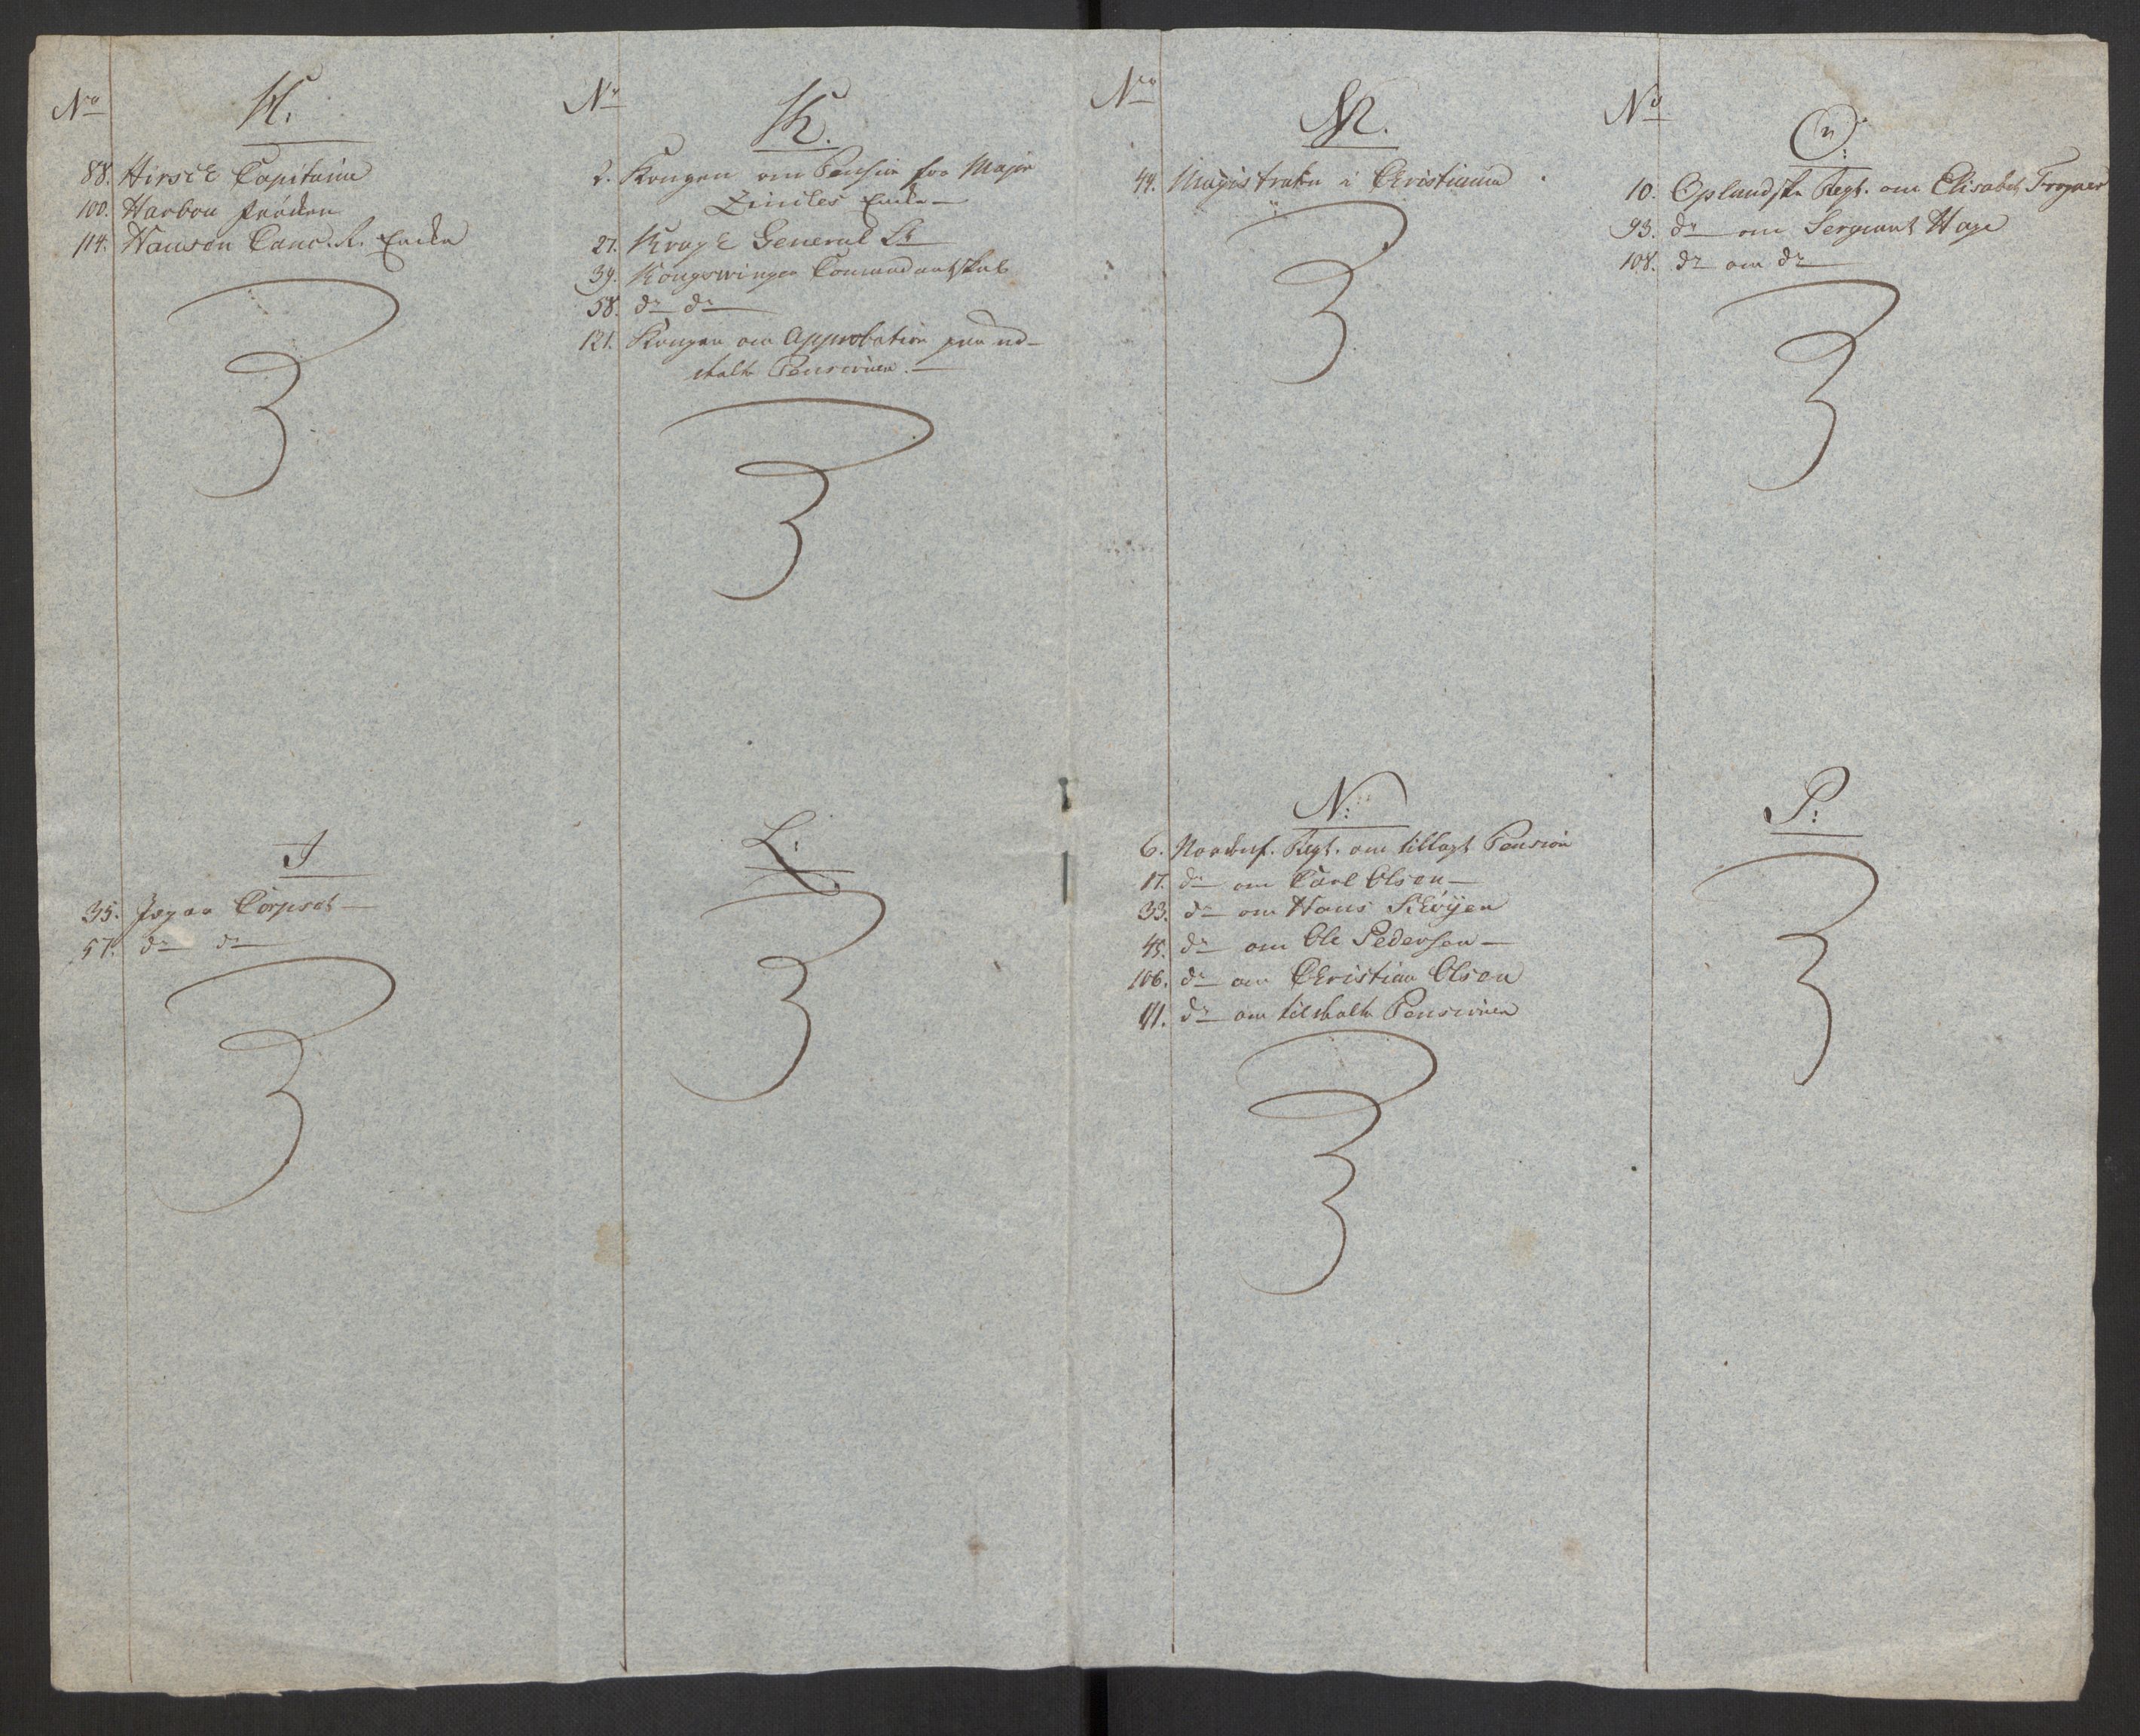 No
H.
88. Hirsch Capitaine
100. Harbou frøken
114. Hanson Canc. R. Encke
I
35. Jæger Corpset
57. do do
No
K.
2. Kongen om Pension for Major
Encke
27. Kragh General Lt
39. Kongswinger Comandantskab
58. do do
121. Kongen om Approbation paa ud-
stælte Pensioner.
L:
No
M.
44. Magistraten i Christiania
N:
6. Nordenf. Regt. om tillagt Pension
17. do om Carl Olsen
33. do om Hans
45. do om Ole Pedersen
106. do om Christian Olsen
111. do om tilstaaede Pensioner
No
O:
10. Oplandske Regt. om Elisabet Frogner
93. do om Sergeant Hage
108. do om do
P: